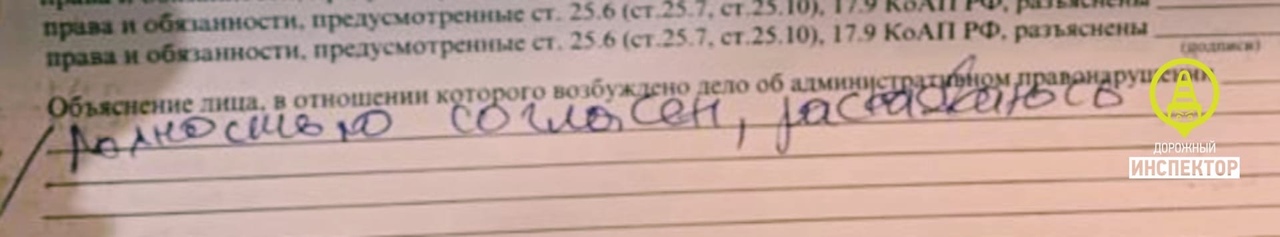 права и обязанности, предусмотренные ст. 25.6 (ст.25.7, ст.25.10), 17.9 КоАП РФ, разъяснены
права и обязанности, предусмотренные ст. 25.6 (ст.25.7, ст.25.10), 17.9 КоАП РФ, разъяснены
(подписи)
Объяснение лица, в отношении которого возбуждено дело об административном правонарушении
полностью согласен,
ДОРОЖНЫЙ
ИНСПЕКТОР